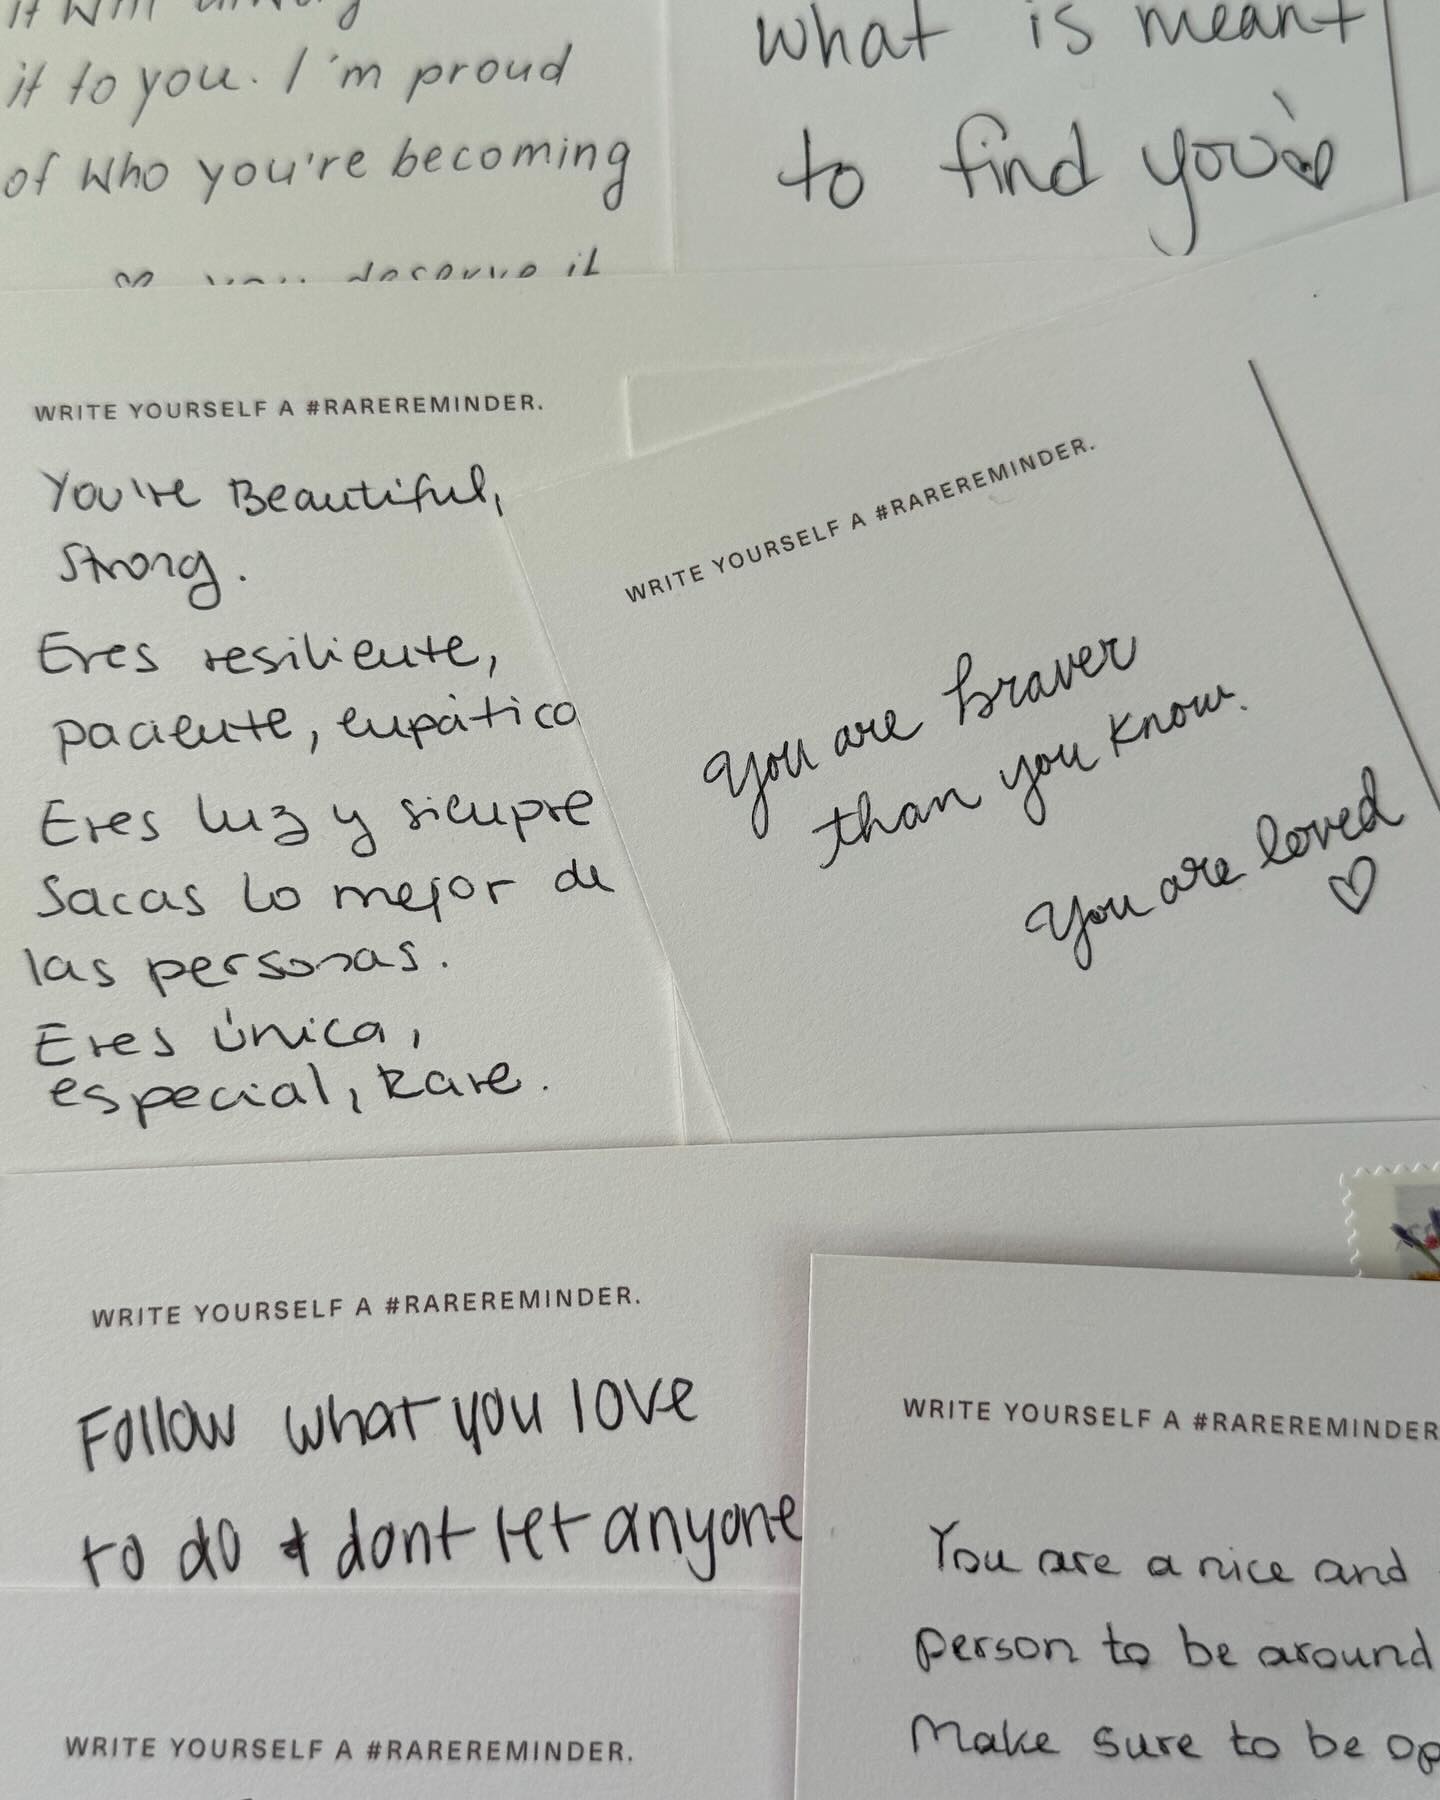 it will
it to you. I'm proud
of who you're becoming
you deserve it
what is meant
to find you
WRITE YOURSELF A #RAREREMINDER.
You're Beautiful,
Strong.
Eres resiliente,
paciente, empático
Eres luz y siempre
Sacas lo mejor de
las personas.
Eres única,
especial, Rare.
WRITE YOURSELF A #RAREREMINDER.
You are braver
than you know.
You are loved ♡
WRITE YOURSELF A #RAREREMINDER.
Follow what you love
to do & dont let anyone
WRITE YOURSELF A #RAREREMINDER
You are a nice and
person to be around
Make sure to be op
WRITE YOURSELF A #RAREREMINDER.